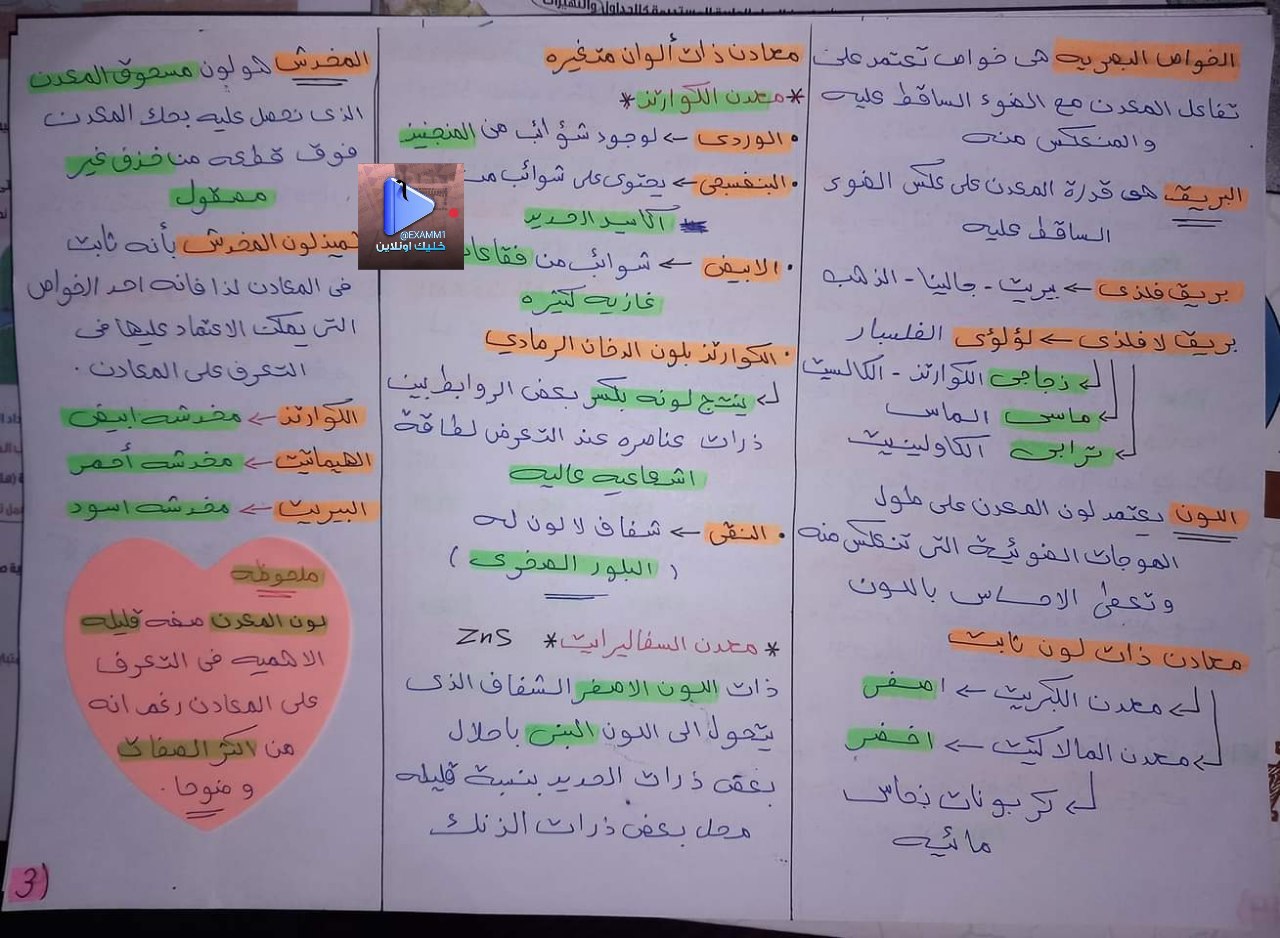 الخواص البصريه هى خواص تعتمد على
تفاعل المعدن مع الضوء الساقط عليه
والمنعكس منه
البريق هى قدرة المعدن على عكس الضوء
الساقط عليه
بريق فلزى ← بيريت - جالينا - الذهب
بريق لا فلذى ← لؤلؤى الفلسبار
زجاجى الكوارتز - الكالسيت
ماسى الماس
ترابى الكاولينيت
اللون يعتمد لون المعدن على طول
الموجات الضوئية التى تنعكس منه
وتعطى الاحساس باللون
معادن ذات لون ثابت
معدن الكبريت ← اصفر
معدن المالاكيت ← اخضر
كربونات نحاس
مائيه
معادن ذات ألوان متغيره
*معدن الكوارتز*
• الوردى ← لوجود شوائب من المنجنيز
• البنفسجى ← يحتوى على شوائب من
اكاسيد الحديد
• الابيض ← شوائب من فقاعات
غازيه كثيره
• الكوارتز بلون الدخان الرمادي
ينتج لونه بكسر بعض الروابط بين
ذرات عناصره عند التعرض لطاقة
اشعاعيه عاليه
• النقى ← شفاف لا لون له
( البلور الصخرى )
* معدن السفاليرايت * ZnS
ذات اللون الاصفر الشفاف الذى
يتحول الى اللون البنى باحلال
بعض ذرات الحديد بنسبة قليله
محل بعض ذرات الزنك
المخدش هو لون مسحوق المعدن
الذى نحصل عليه بحك المعدن
فوق قطعه من خزف غير
مصقول
يتميز لون المخدش بأنه ثابت
فى المعادن لذا فانه احد الخواص
التى يمكن الاعتماد عليها فى
التعرف على المعادن .
الكوارتز ← مخدشه ابيض
الهيماتيت ← مخدشه أحمر
البيريت ← مخدشه اسود
ملحوظه
لون المعدن صفه قليله
الاهميه فى التعرف
على المعادن رغم انه
من اكثر الصفات
وضوحا .
3)
@EXAMM1
خليك اونلاين